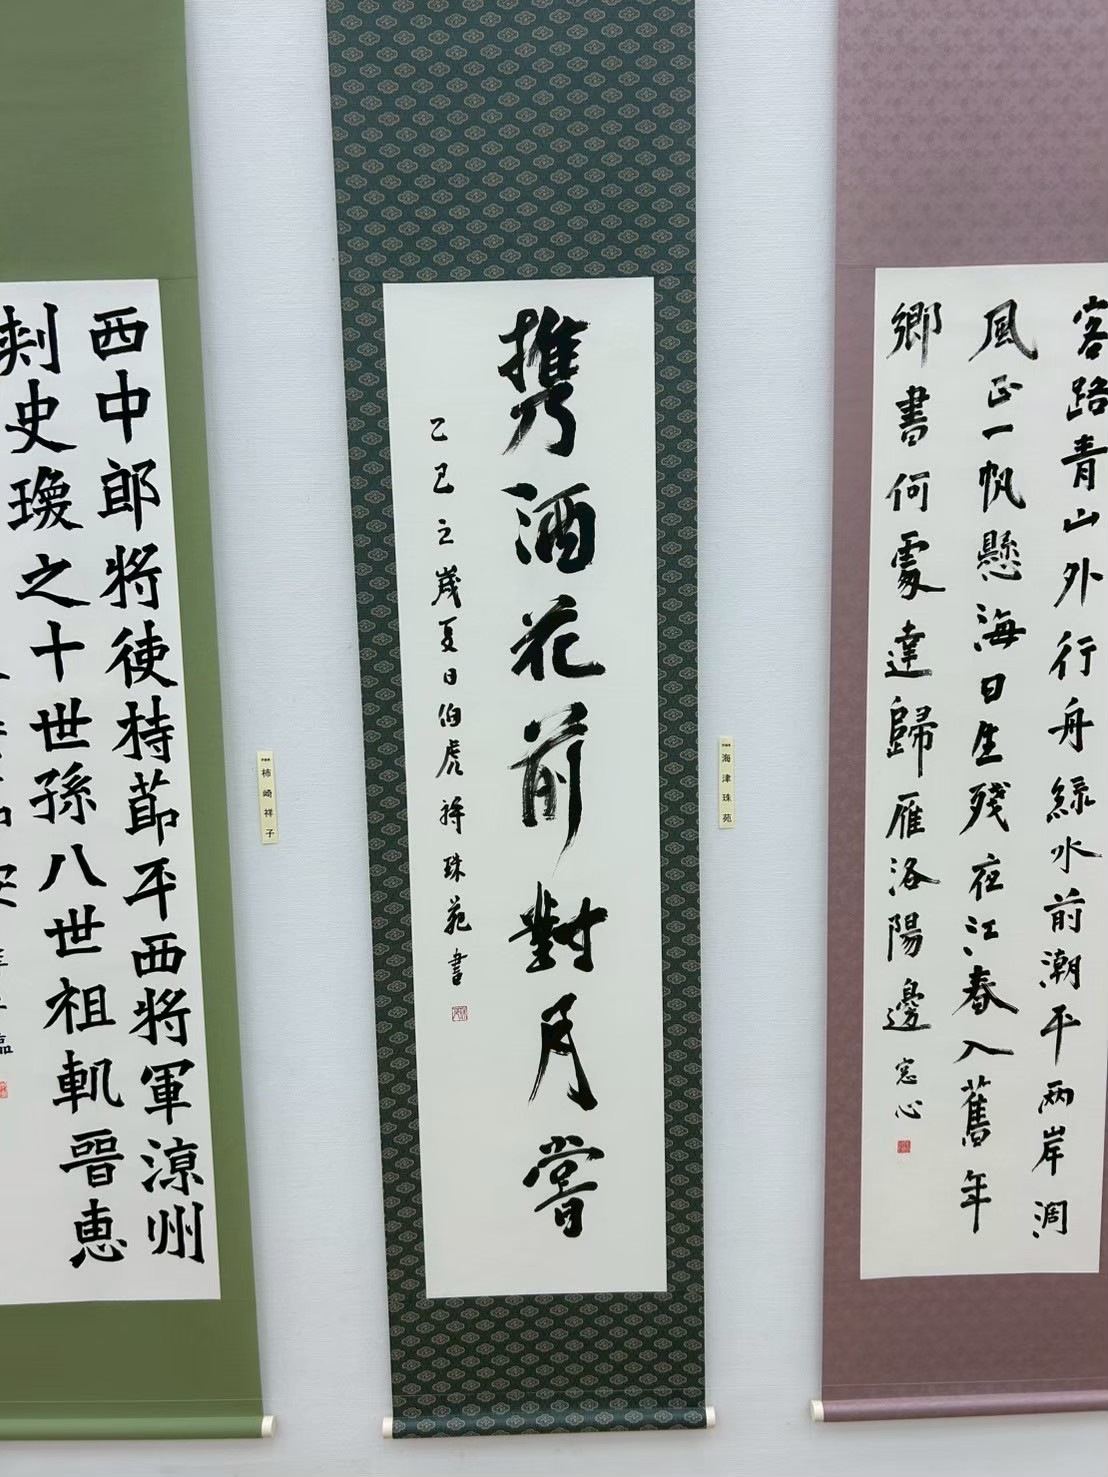 客路青山外行舟緑水前潮平两岸濶
風正一帆懸海日生殘夜江春入舊年
鄉書何處達歸雁洛陽邊 窓心
海津珠苑
携酒花前對月嘗
乙巳之歳夏日伯虎詩 珠苑書
柿崎祥子
西中郎将使持節平西将軍涼州
刺史瓊之十世孫八世祖軌晉恵